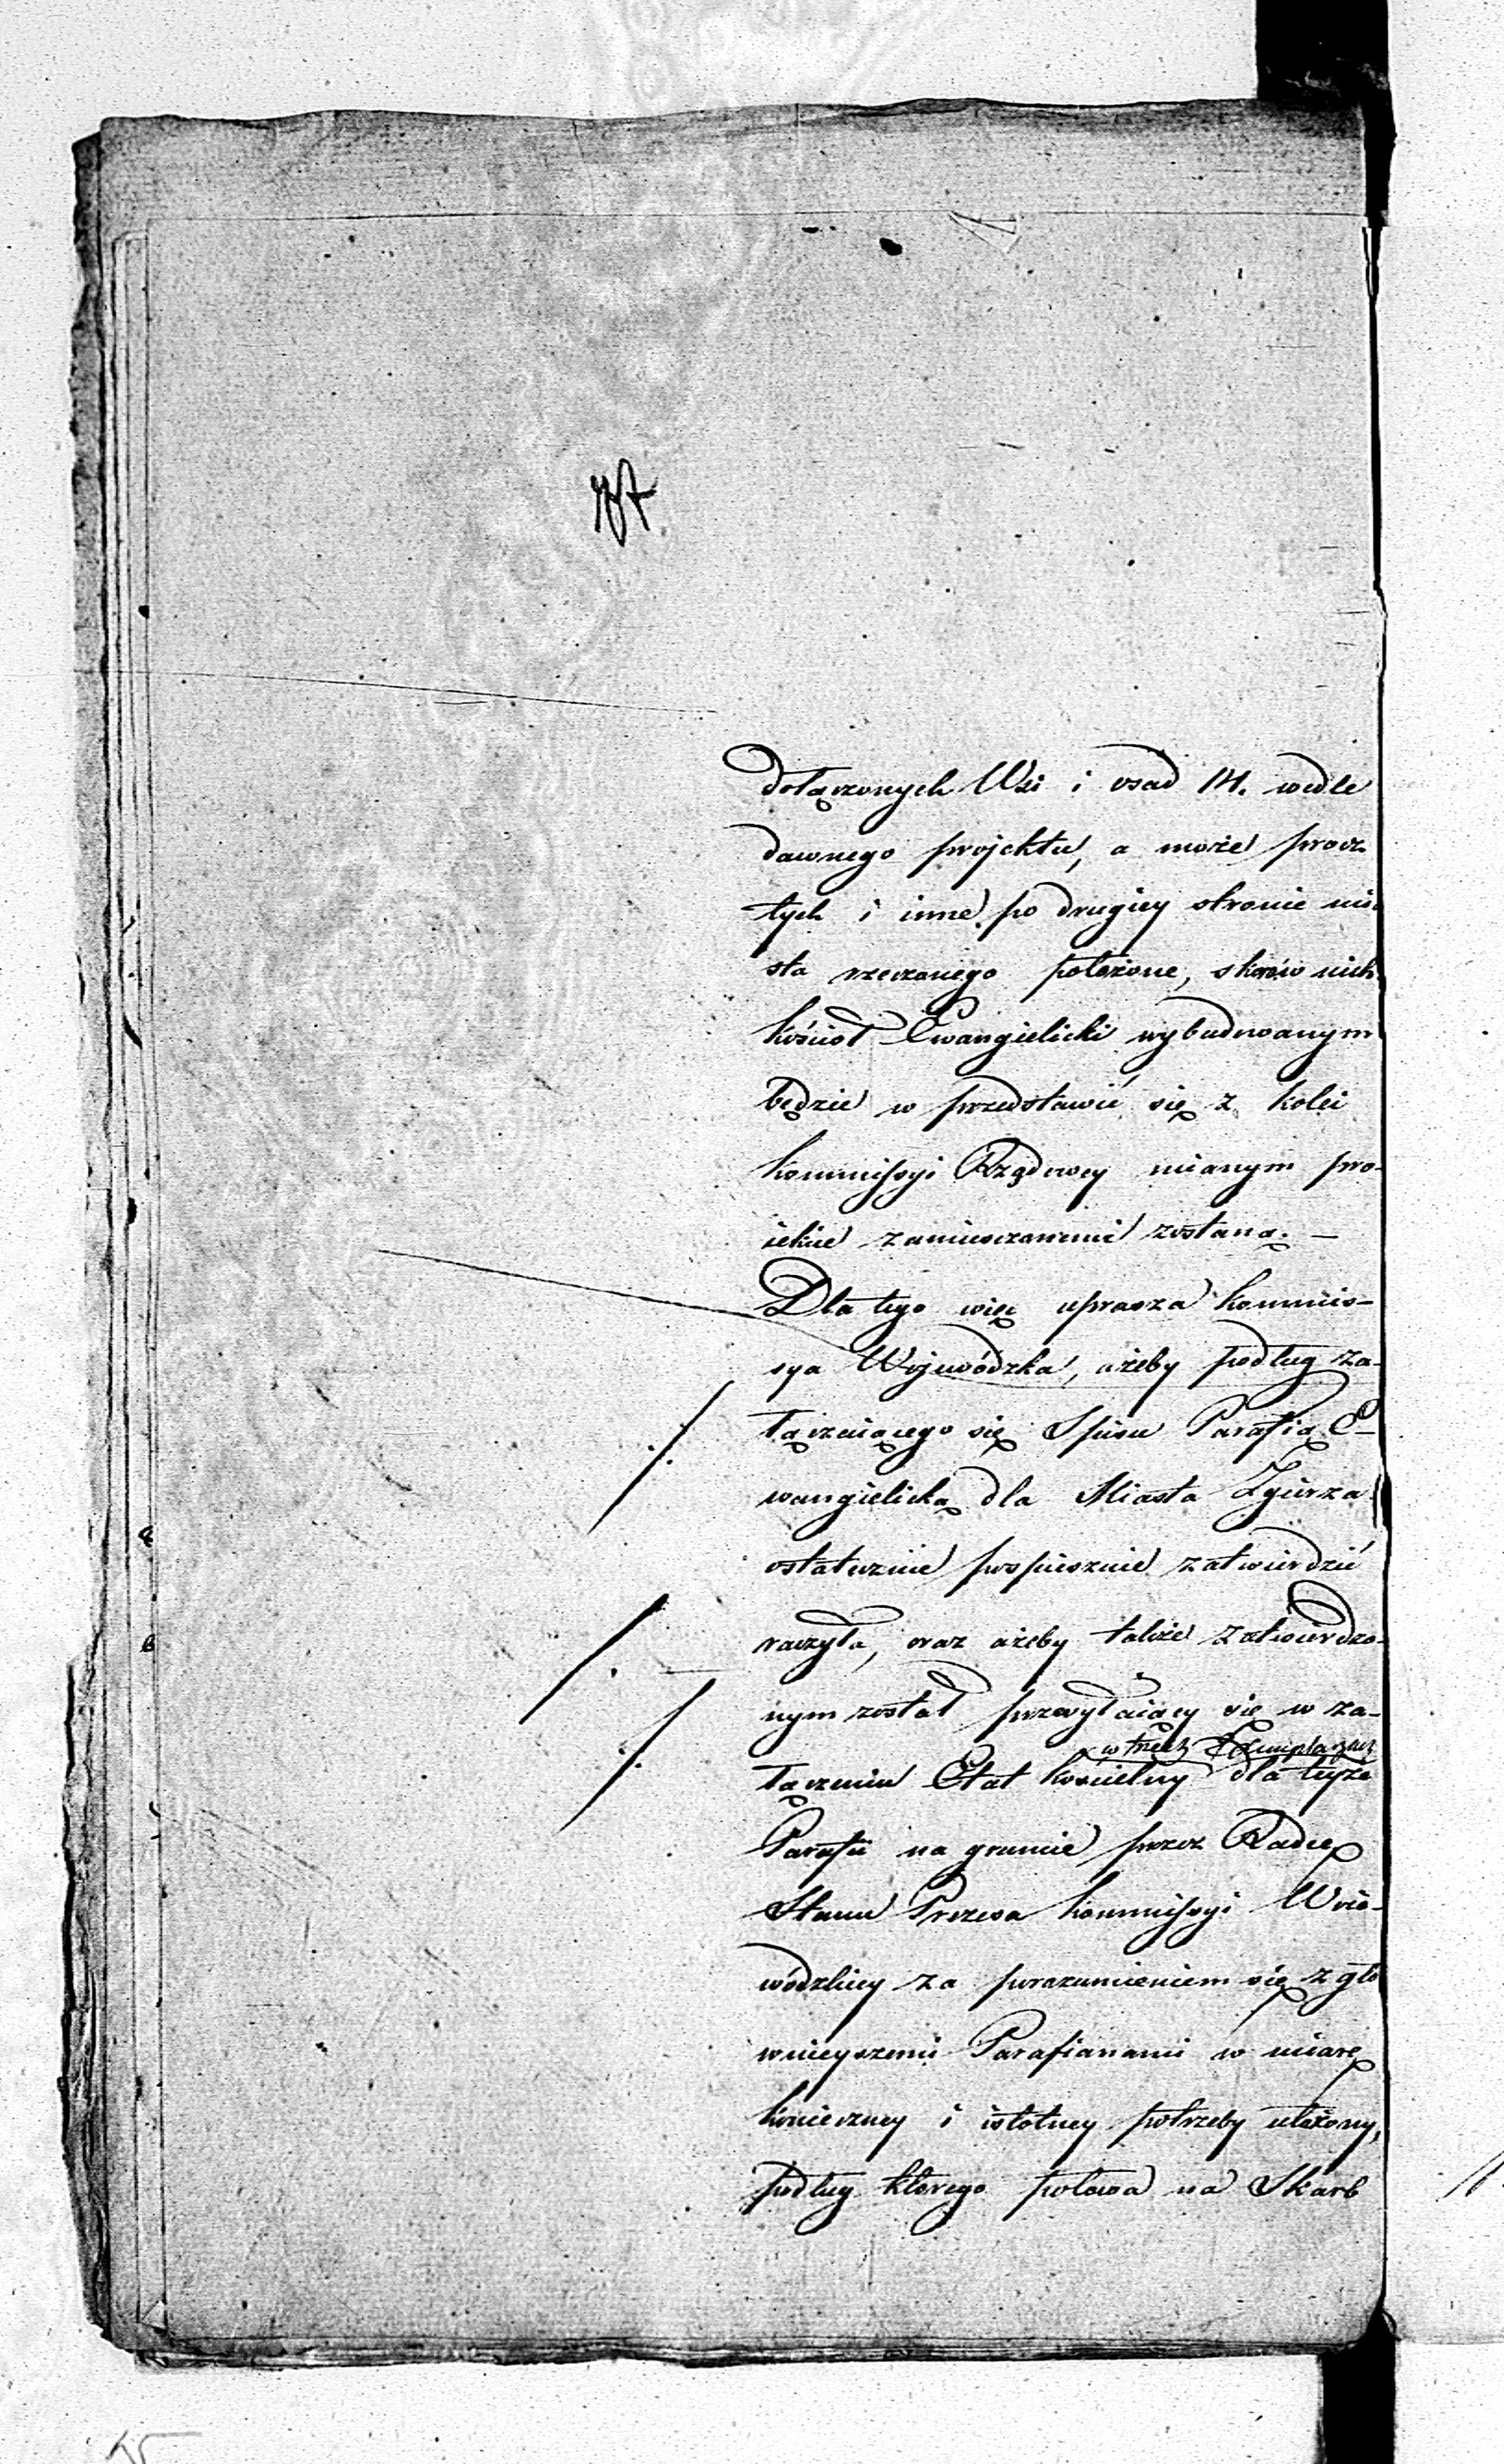 dołączonych Wsi i osad 14. wedle
dawnego projektu, a może procz
tych i inne po drugiey stronie mia
sta rzeczonego położone, skoro w nich
kościoł Ewangielicki wybudowanym
będzie w przedstawić się z kolei
kommissyi Rządowey mianym pro-
iekcie zamieszczonemi zostaną. —
Dla tego więc uprasza Kommis-
sya Wojewódzka, ażeby podług za-
łączaiącego się Spisu Parafią E-
wangielicką dla Miasta Zgierza
ostatecznie pospiesznie zatwierdzić
raczyła, oraz ażeby także zatwierdzo-
nym został przesyłaiący się w za-
w trzech Exemplarzach
łączeniu Etat kościelny dla teyże
Parafii na gruncie przez Radcę
Stanu Prezesa Kommissyi Woie-
wódzkiey za porozumieniem się z głó
wnieyszemi Parafianami w miarę
konieczney i istotney potrzeby ułożony,
podług którego połowa na Skarb